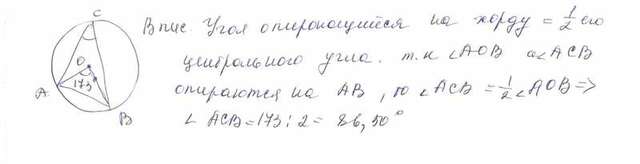 C
Впис. Угол опирающийся на хорду = 1/2 его
центрального угла. т.к ∠AOB и ∠ACB
O
173
опираются на AB, то ∠ACB = 1/2 ∠AOB =>
A
B
∠ACB = 173 : 2 = 86,50°